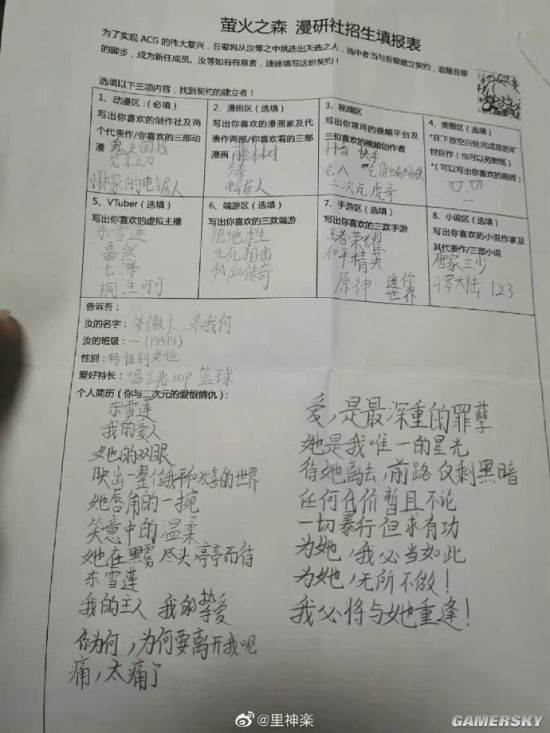 萤火之森 漫研社招生填报表
为了实现 ACG 的伟大复兴，吾辈将从汝等之中挑选出天选之人，选中者当与吾辈建立契约，追随吾辈
的脚步，成为新任成员。汝等如有有意者，速速填写这份契约！
选填以下三项内容，找到契约的建立者！
1、动漫区：(必填)
写出你喜欢的制作社及两
个代表作/你喜欢的三部动
漫 鬼灭回战
咒术之刃
琳家的电锯人
2、漫画区（选填）
写出你喜欢的漫画家及代
表作两部/你喜欢看的三部
漫画 藤树
电锯人
3、视频区
写出你常用的视频平台及
三位喜欢的视频创作者
抖音 快手
老八
二次元虎哥
4、美图区（选填）
*在下放空白处完成您的旷
世巨作（也可以另附纸）
*（可以写出你喜欢的画师）
5、VTuber（选填）
写出你喜欢的虚拟主播
东雪莲
嘉然
七海
桐生可可
6、端游区（选填）
写出你喜欢的三款端游
绝地求生
生死狙击
热血传奇
7、手游区（选填）
写出你喜欢的三款手游
王者荣耀
和平精英
原神 迷你
世界
8、小说区（选填）
写出你喜欢的小说作家及
其代表作/三部小说
唐家三少
斗罗大陆 123
告诉吾：
汝的名字：奈我何
汝的班级：一(14514)
性别：转性别女性
爱好特长：唱跳rap 篮球
个人简历（你与二次元的爱恨情仇）：
东雪莲
我的爱人
她的双眼
映出一整个我称心喜的世界
她唇角的一抹
笑意中的温柔
她在黑雾尽头亭亭而待
东雪莲
我的主人 我的挚爱
你为何，为何要离开我呢
痛，太痛了
爱，是最深重的罪孽
她是我唯一的星光
待她离去，前路仅剩黑暗
任何代价暂且不论
一切暴行但求有功
为她，我必当如此
为她，无所不做！
我必将与她重逢！
@里神楽
GAMERSKY